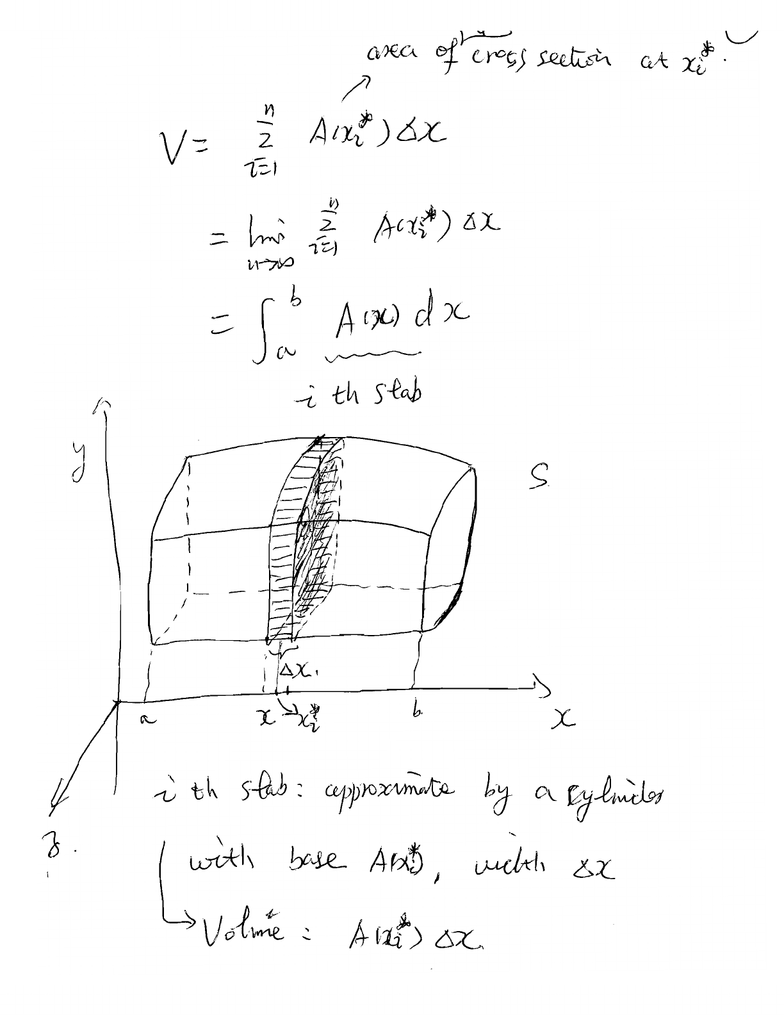 area of cross section at xᵢ*.
V = ∑ᵢ₌₁ⁿ A(xᵢ*) Δx
= lim n→∞ ∑ᵢ₌₁ⁿ A(xᵢ*) Δx
= ∫ₐᵇ A(x) dx
i th slab
y
S
Δx.
a x xᵢ* b x
z.
i th slab: approximate by a cylinder
with base A(xᵢ*), width Δx
Volume: A(xᵢ*) Δx.